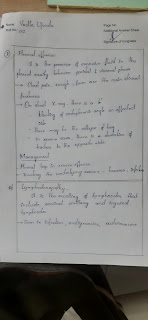 Name
Page No.
Roll No.
Additional Answer Sheet
Signature of Invigilator
Pleural effusion
It is the presence of excessive fluid in the
pleural cavity between parietal & visceral pleura
Chest pain, cough, fever are the main clinical
features
On chest X-ray, there is a
blunting of costophrenic angle on affected
side
There may be the collapse of lung
In severe cases, there is a deviation of
trachea to the opposite side
Management
Pleural tap in severe effusion
Treating the underlying causes
Lymphadenopathy
It is the swelling of lymphnodes that
include cervical, axillary and inguinal
lymphnodes
Seen in infection, malignancies, autoimmune